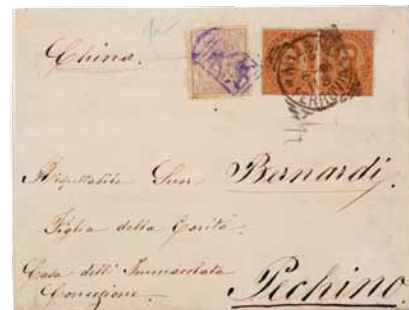 China.
Rispettabile Suor Bernardi,
Figlia della Carità
Casa dell' Immacolata
Concezione.
Pechino.